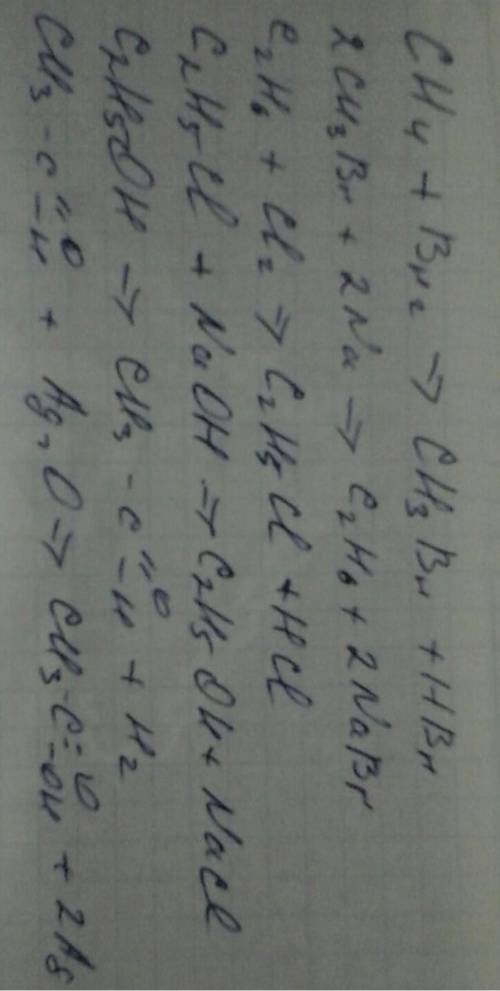 CH4 + Br2 → CH3Br + HBr
2CH3Br + 2Na → C2H6 + 2NaBr
C2H6 + Cl2 → C2H5Cl + HCl
C2H5Cl + NaOH → C2H5OH + NaCl
C2H5OH → CH3 - C = O - H + H2
CH3 - C = O - H + Ag2O → CH3 - C = O - OH + 2Ag